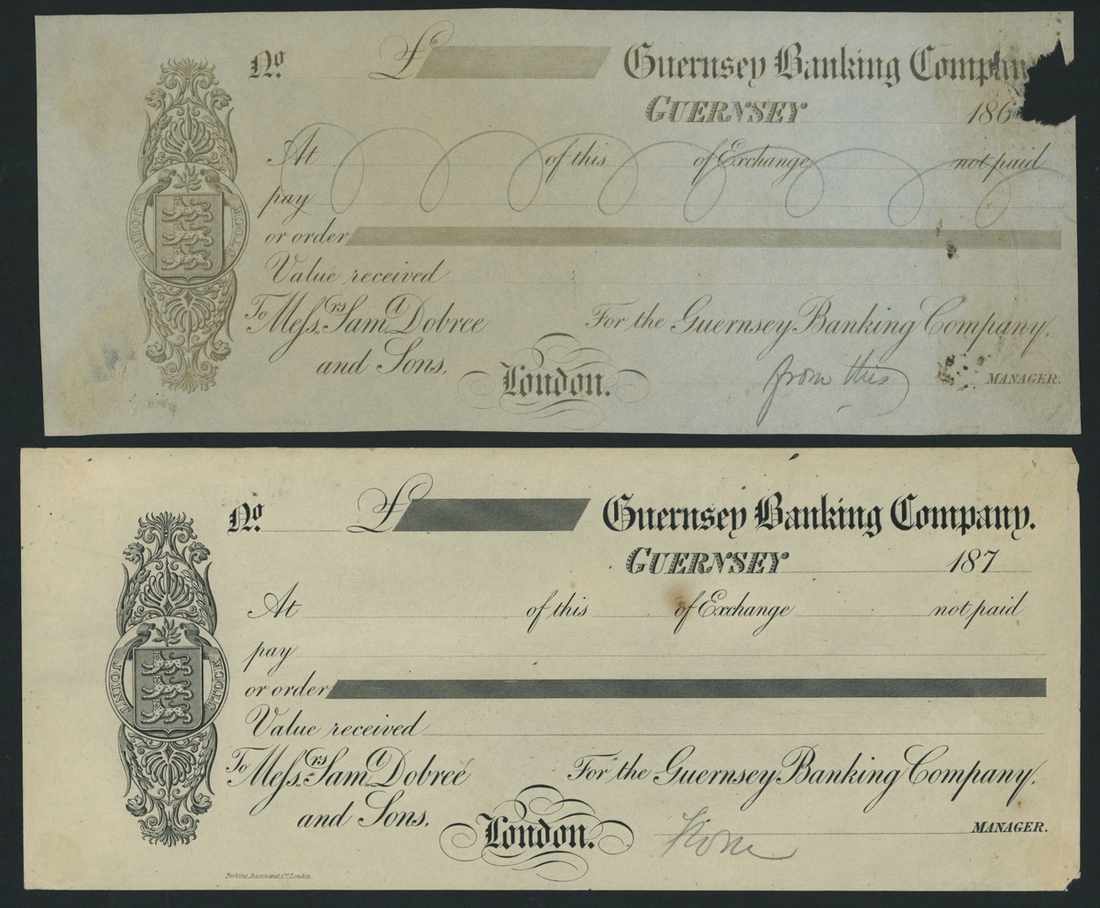 No. £ Guernsey Banking Compan
GUERNSEY 186
At of this of Exchange not paid
pay
or order
Value received
To Messrs. Saml. Dobree For the Guernsey Banking Company,
and Sons. London. from this MANAGER.
JOINT STOCK
No. £ Guernsey Banking Company.
GUERNSEY 187
At of this of Exchange not paid
pay
or order
JOINT STOCK
Value received
To Messrs. Saml. Dobree For the Guernsey Banking Company,
and Sons. London. MANAGER.
Perkins, Bacon and Co. London.